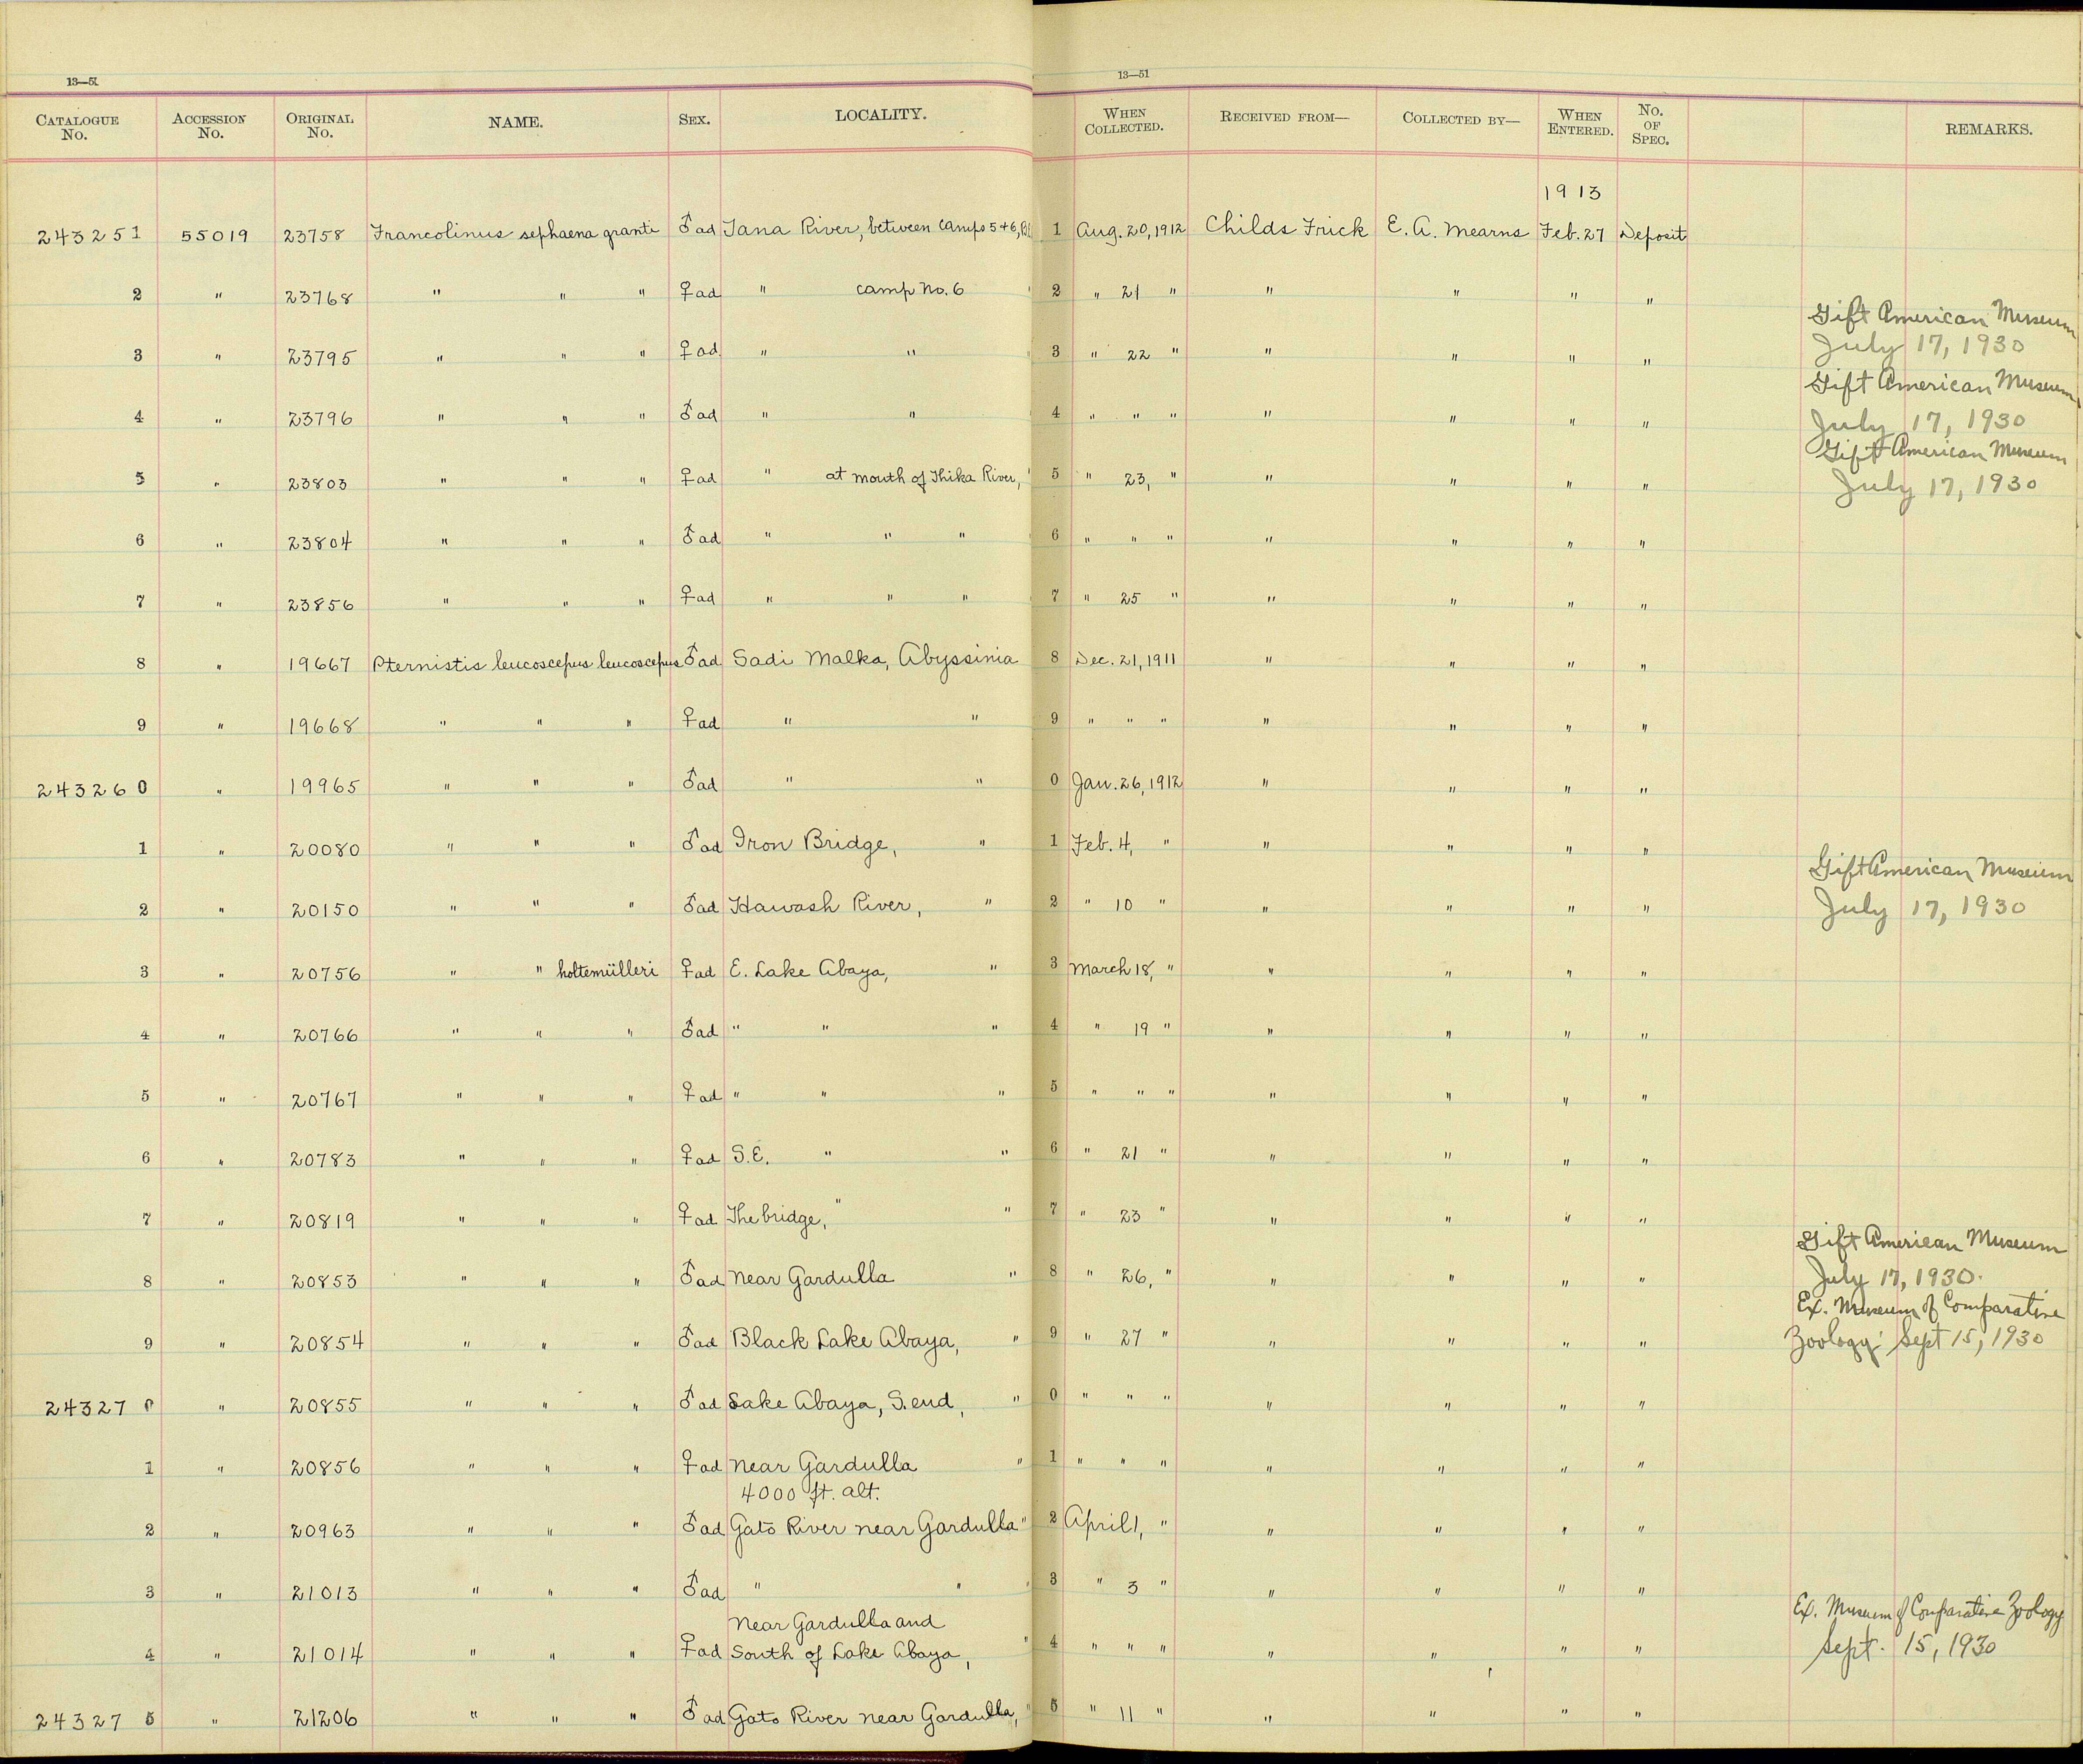 13—51
13—51
CATALOGUE No. ACCESSION No. ORIGINAL No. NAME. SEX. LOCALITY. WHEN COLLECTED. RECEIVED FROM— COLLECTED BY— WHEN ENTERED. No. OF SPEC. REMARKS.
1913
243251 55019 23758 Francolinus sephaena granti ♂ad Tana River, between camps 5+6, 1 Aug. 20, 1912 Childs Frick E. A. Mearns Feb. 27 Deposit
2 " 23768 " " " ♀ad " camp No. 6 " 2 " 21 " " " " "
Gift American Museum
3 " 23795 " " " ♀ad " " " 3 " 22 " " " " " July 17, 1930
Gift American Museum
4 " 23796 " " " ♂ad " " " 4 " " " " " " " July 17, 1930
Gift American Museum
5 " 23803 " " " ♀ad " at mouth of Thika River, " 5 " 23, " " " " " July 17, 1930
6 " 23804 " " " ♂ad " " " " 6 " " " " " " "
7 " 23856 " " " ♀ad " " " " 7 " 25 " " " " "
8 " 19667 Pternistis leucoscepus leucoscepus ♂ad Sadi Malka, Abyssinia 8 Dec. 21, 1911 " " " "
9 " 19668 " " " ♀ad " " 9 " " " " " " "
243260 " 19965 " " " ♂ad " " 0 Jan. 26, 1912 " " " "
1 " 20080 " " " ♂ad Iron Bridge, " 1 Feb. 4, " " " " "
Gift American Museum
2 " 20150 " " " ♂ad Hawash River, " 2 " 10 " " " " " July 17, 1930
3 " 20756 " " holtemülleri ♀ad E. Lake Abaya, " 3 March 18, " " " " "
4 " 20766 " " " ♂ad " " " 4 " 19 " " " " "
5 " 20767 " " " ♀ad " " " 5 " " " " " " "
6 " 20783 " " " ♀ad S.E. " " 6 " 21 " " " " "
7 " 20819 " " " ♀ad The bridge, " " 7 " 23 " " " " "
Gift American Museum
8 " 20853 " " " ♂ad Near Gardulla " 8 " 26, " " " " " July 17, 1930.
Ex. Museum of Comparative
9 " 20854 " " " ♂ad Black Lake Abaya, " 9 " 27 " " " " " Zoology Sept 15, 1930
243270 " 20855 " " " ♂ad Lake Abaya, S. end, " 0 " " " " " " "
1 " 20856 " " " ♀ad Near Gardulla " 1 " " " " " " "
4000 ft. alt.
2 " 20963 " " " ♂ad Gato River near Gardulla " 2 April 1, " " " " "
3 " 21013 " " " ♂ad " " " 3 " 3 " " " " "
Near Gardulla and
Ex. Museum of Comparative Zoology
4 " 21014 " " " ♀ad South of Lake Abaya, " 4 " " " " " " " Sept. 15, 1930
243275 " 21206 " " " ♂ad Gato River near Gardulla, " 5 " 11 " " " " "